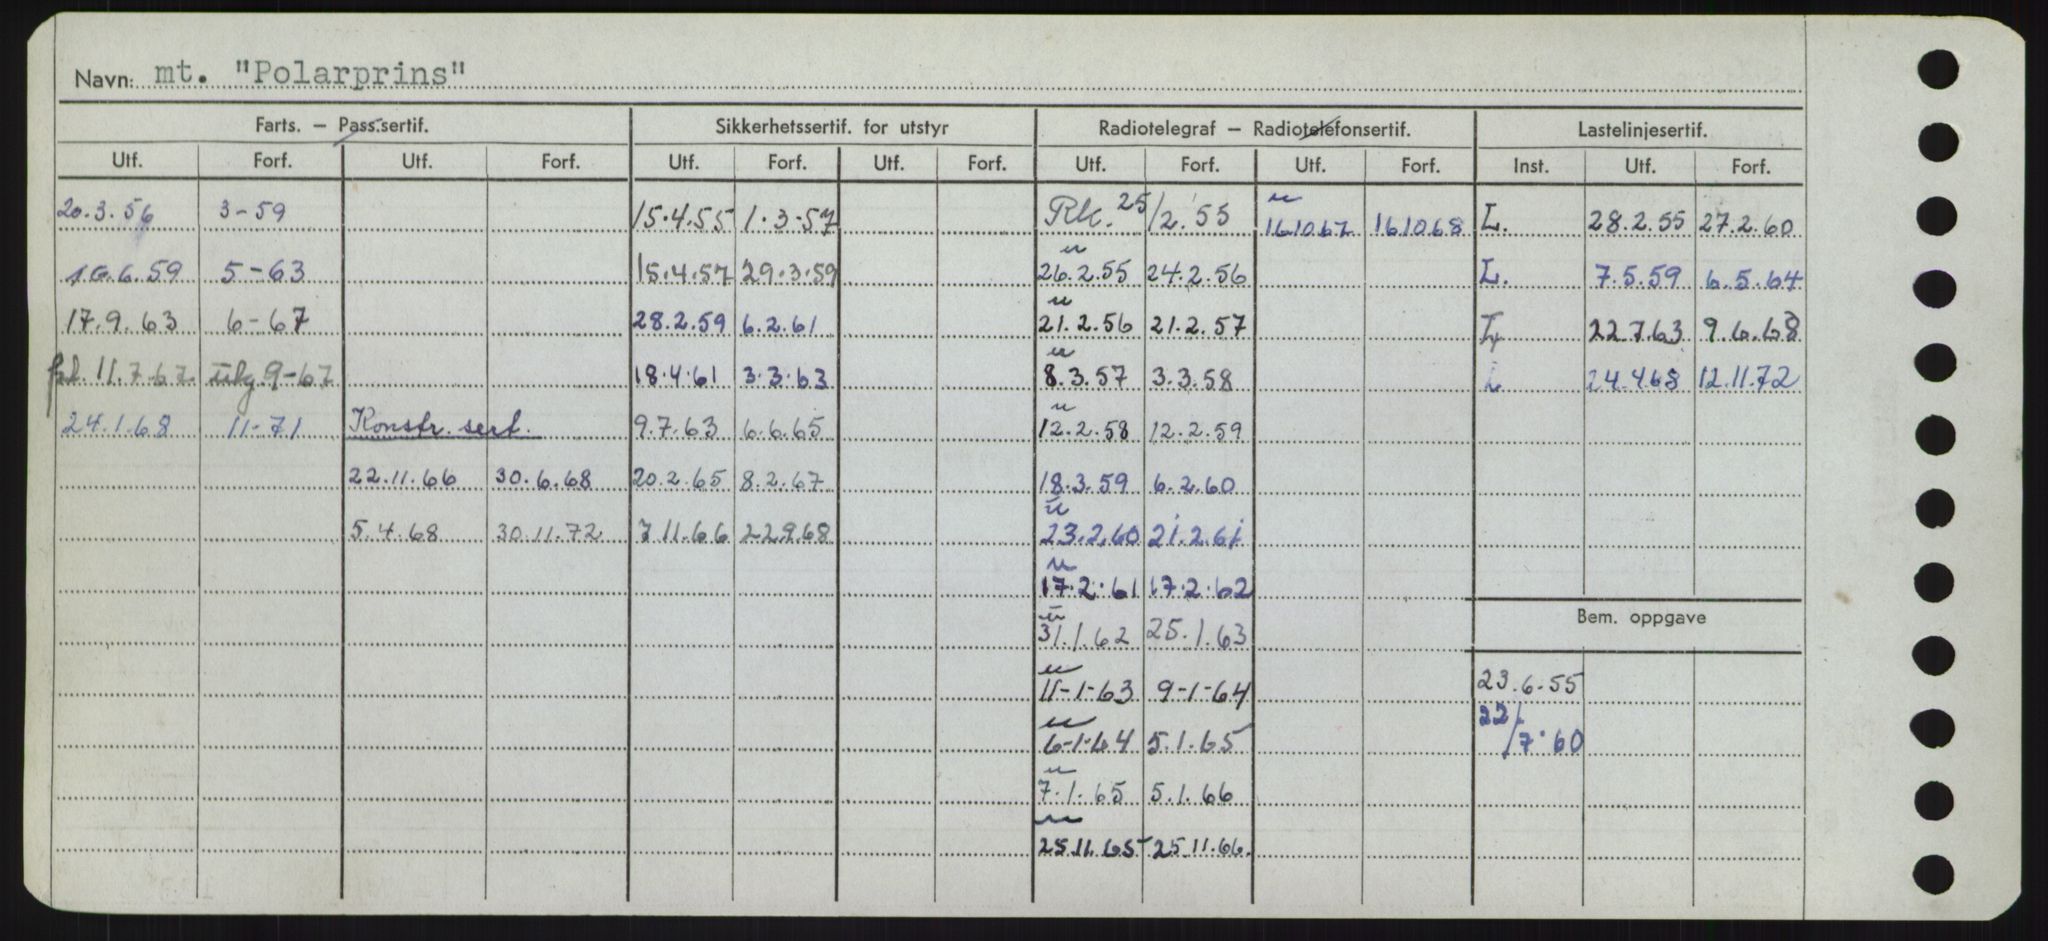 Navn: mt. "Polarprins"
Farts. – Pass.sertif. Sikkerhetssertif. for utstyr Radiotelegraf – Radiotelefonsertif. Lastelinjesertif.
Utf. Forf. Utf. Forf. Utf. Forf. Utf. Forf. Utf. Forf. Utf. Forf. Inst. Utf. Forf.
20.3.56 3-59 15.4.55 1.3.57 Rk. 25/2.55 u 16.10.67 16.10.68 L. 28.2.55 27.2.60
16.6.59 5-63 15.4.57 29.3.59 u 26.2.55 24.2.56 L. 7.5.59 6.5.64
17.9.63 6-67 28.2.59 6.2.61 u 21.2.56 21.2.57 L 22.7.63 9.6.68
11.7.67 9-67 18.4.61 3.3.63 u 8.3.57 3.3.58 L 24.4.68 12.11.72
24.1.68 11-71 Konstr. sert. 9.7.63 6.6.65 u 12.2.58 12.2.59
22.11.66 30.6.68 20.2.65 8.2.67 18.3.59 6.2.60
5.4.68 30.11.72 7.11.66 22.9.68 u 23.2.60 21.2.61
u 17.2.61 17.2.62
u 31.1.62 25.1.63
Bem. oppgave
u 11-1-63 9-1-64 23.6.55
u 6-1-64 5.1.65 22/7.60
u 7.1.65 5.1.66
u 25.11.65 25.11.66.